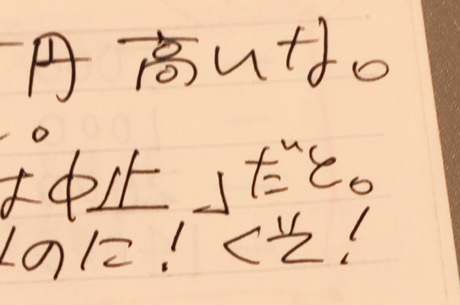 円 高いな。
。
中止」だと。
のに！くそ！